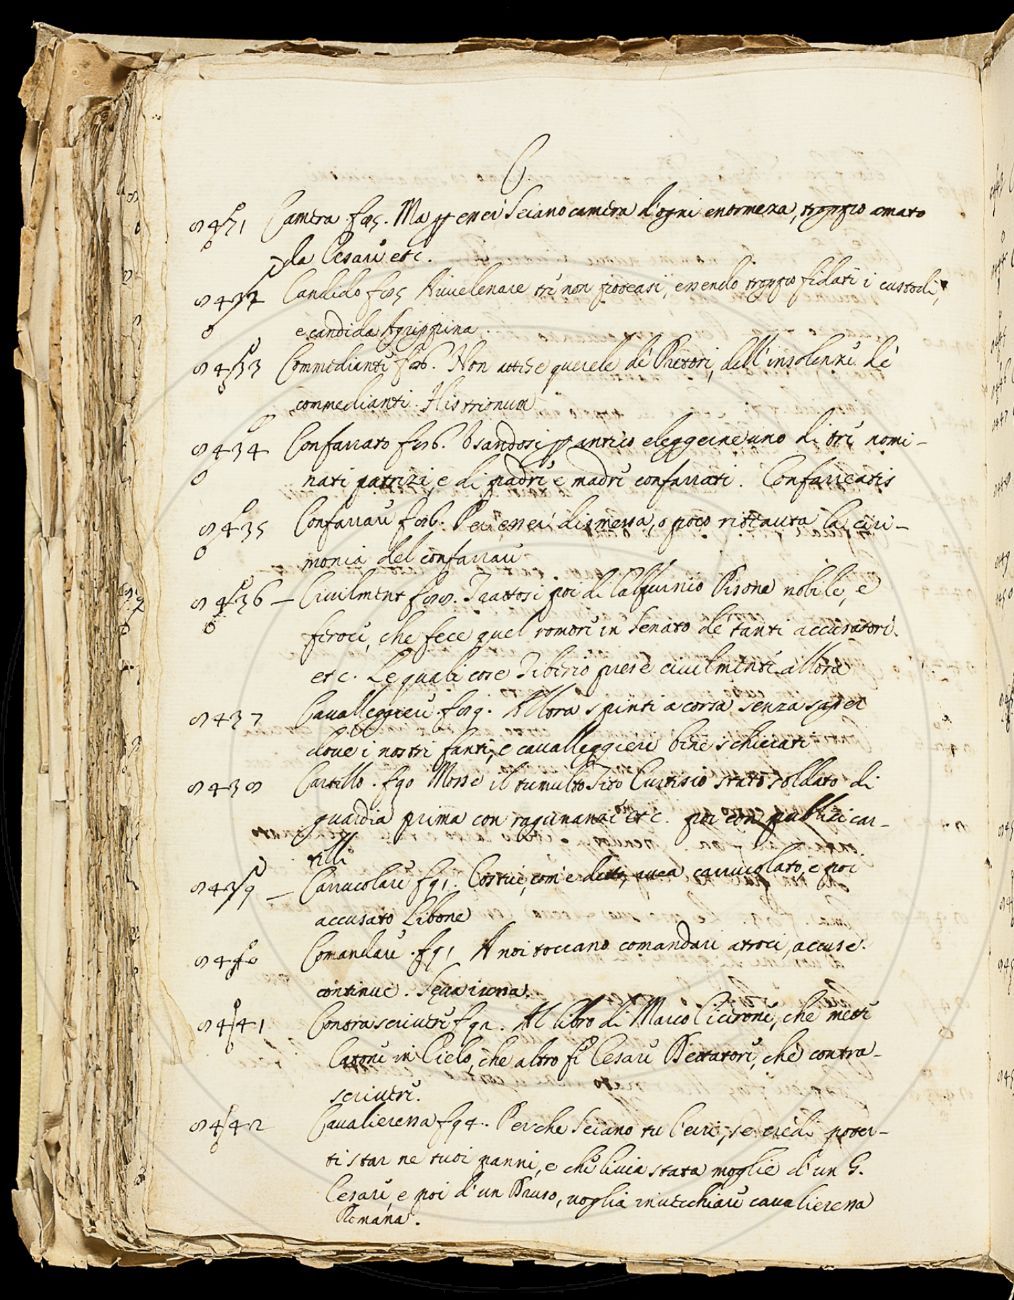 C.
Camera f85. Ma per esser Seiano camera d'ogni entomera, troppo amato
da Cesare etc.
Candido f85 Avvelenare tre non poteasi, essendo troppo fidati i custodi,
e candida Agrippina
Commedianti f86. Non attese querele de' Pretori, dell'insolenze de'
commedianti. Histrionum
Confarrato f86. Usandosi per antico eleggerne uno di tre nomi-
nati patrizi, e di padre e madre confarrati. Confarreatis
Confarrare f86. Per esser dismessa, o poco ristaurata la ciri-
monia del confarrare
Civilmente Trattossi poi di Calpurnio Pisone nobile, e
feroce, che fece quel romore in Senato de' tanti accusatori.
etc. Le quali cose Tiberio prese civilmente allora
9437 Cavalleggiere f89. Allora spinti a corsa, senza saper
dove i nostri fanti, e cavalleggieri bene schierati
9438 Cartello. f90 Mosse il tumulto Tito Curtisio stato soldato di
guardia prima con ragunanze etc. poi con pubblici car-
telli
Carrucolare f91. Costui, com'è detto, avea carrucolato, e poi
accusato Libone
Comandare f91 A noi toccano comandari atroci, accuse
continue. Seva iussa.
9441 Contrascrivere f92. Al libro di Marco Cicerone, che mette
Catone in Cielo, che altro fe' Cesare Dettatore, che contra-
scrivere.
9442 Cavalieressa f94. Perche Seiano tu l'erri, se credi poter-
ti star ne tuoi panni, e che livia stata moglie d'un G.
Cesare, e poi d'un Druso, voglia invecchiare cavalieressa
Romana.